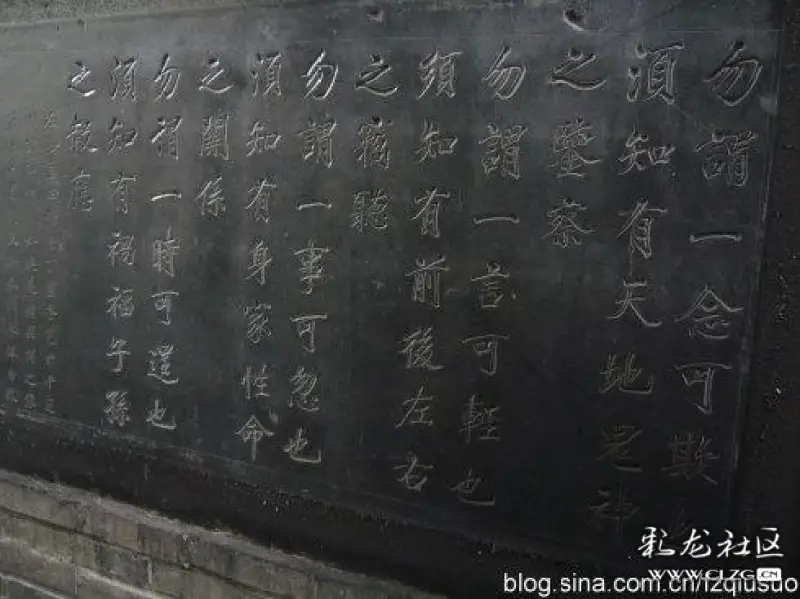 勿謂一念可欺也
須知有天地鬼神
之鑒察
勿謂一言可輕也
須知有前後左右
之竊聽
勿謂一事可忽也
須知有身家性命
之關係
勿謂一時可逞也
須知有禍福子孫
之報應
彩龙社区
www.CLZG.CN
blog.sina.com.cn/lzqiusuo